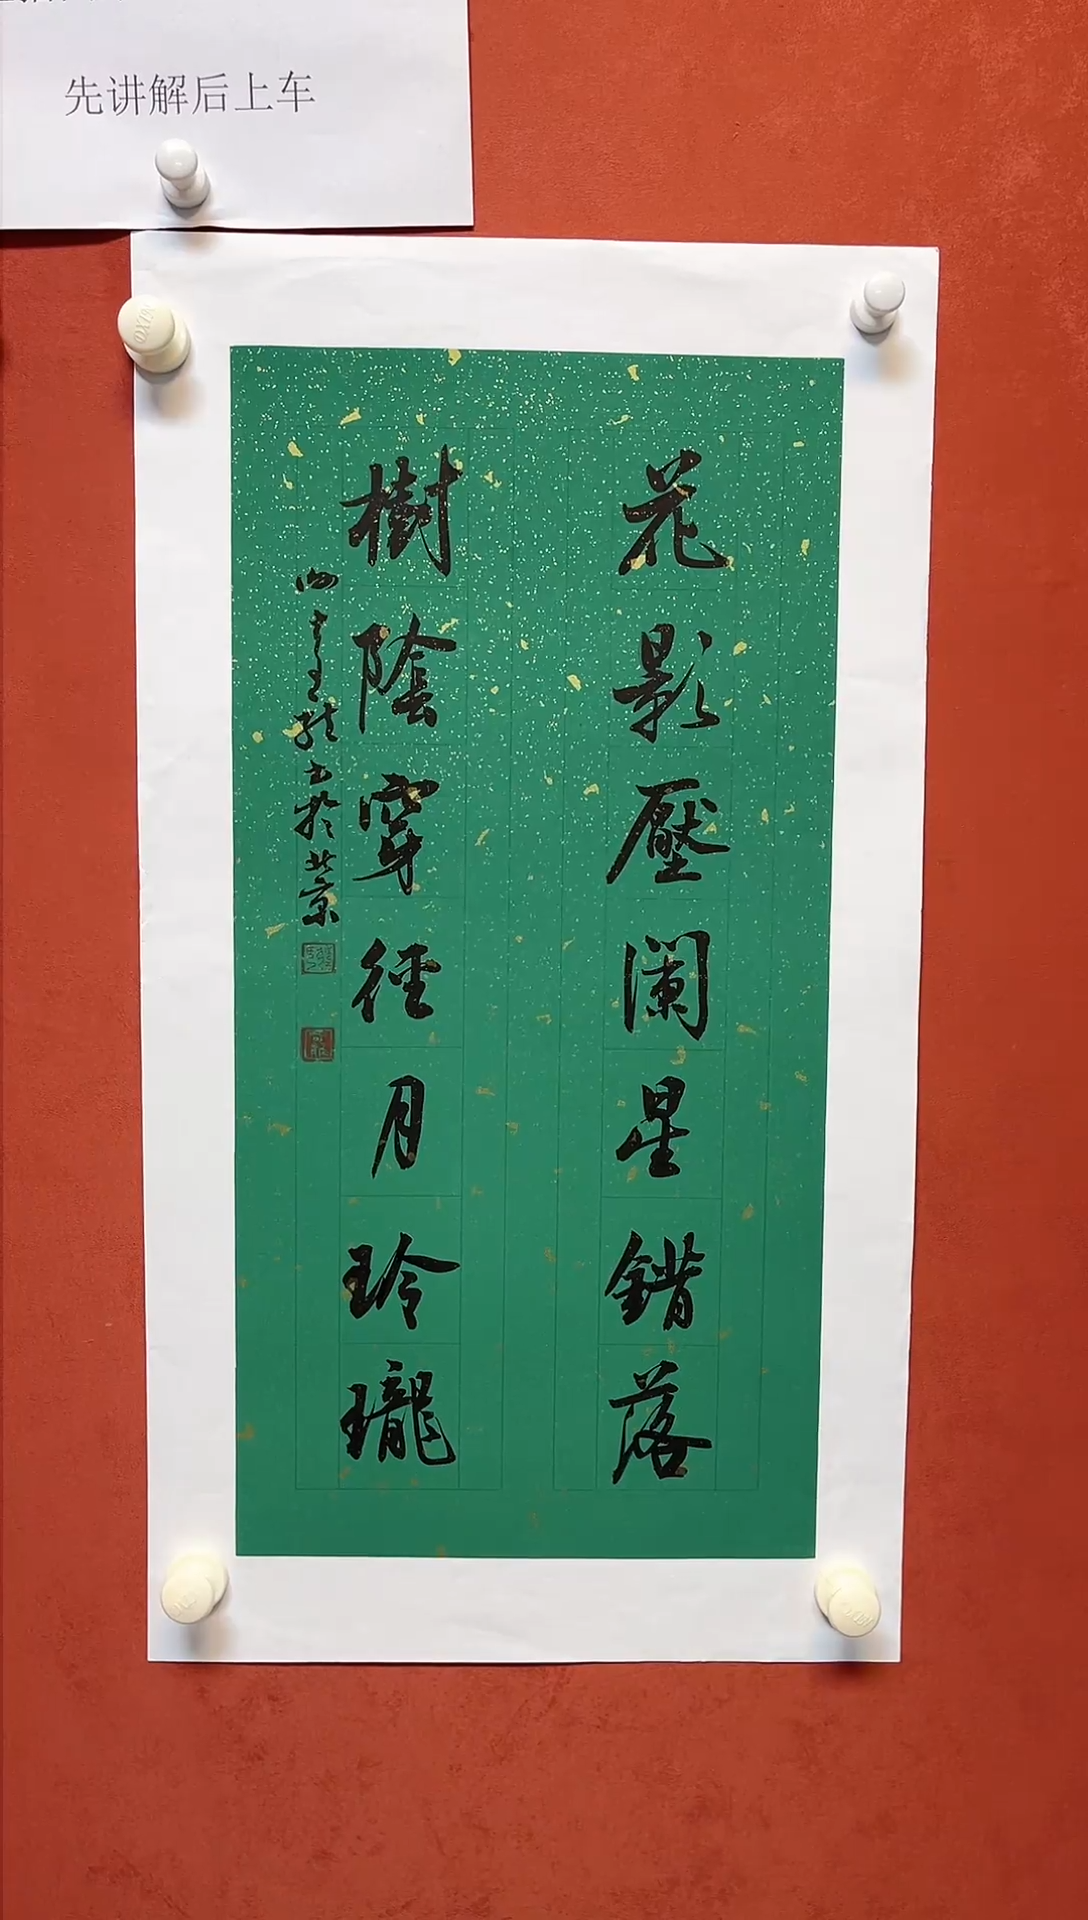 先讲解后上车
花影壓闌星錯落
樹陰穿徑月玲瓏
书於北京